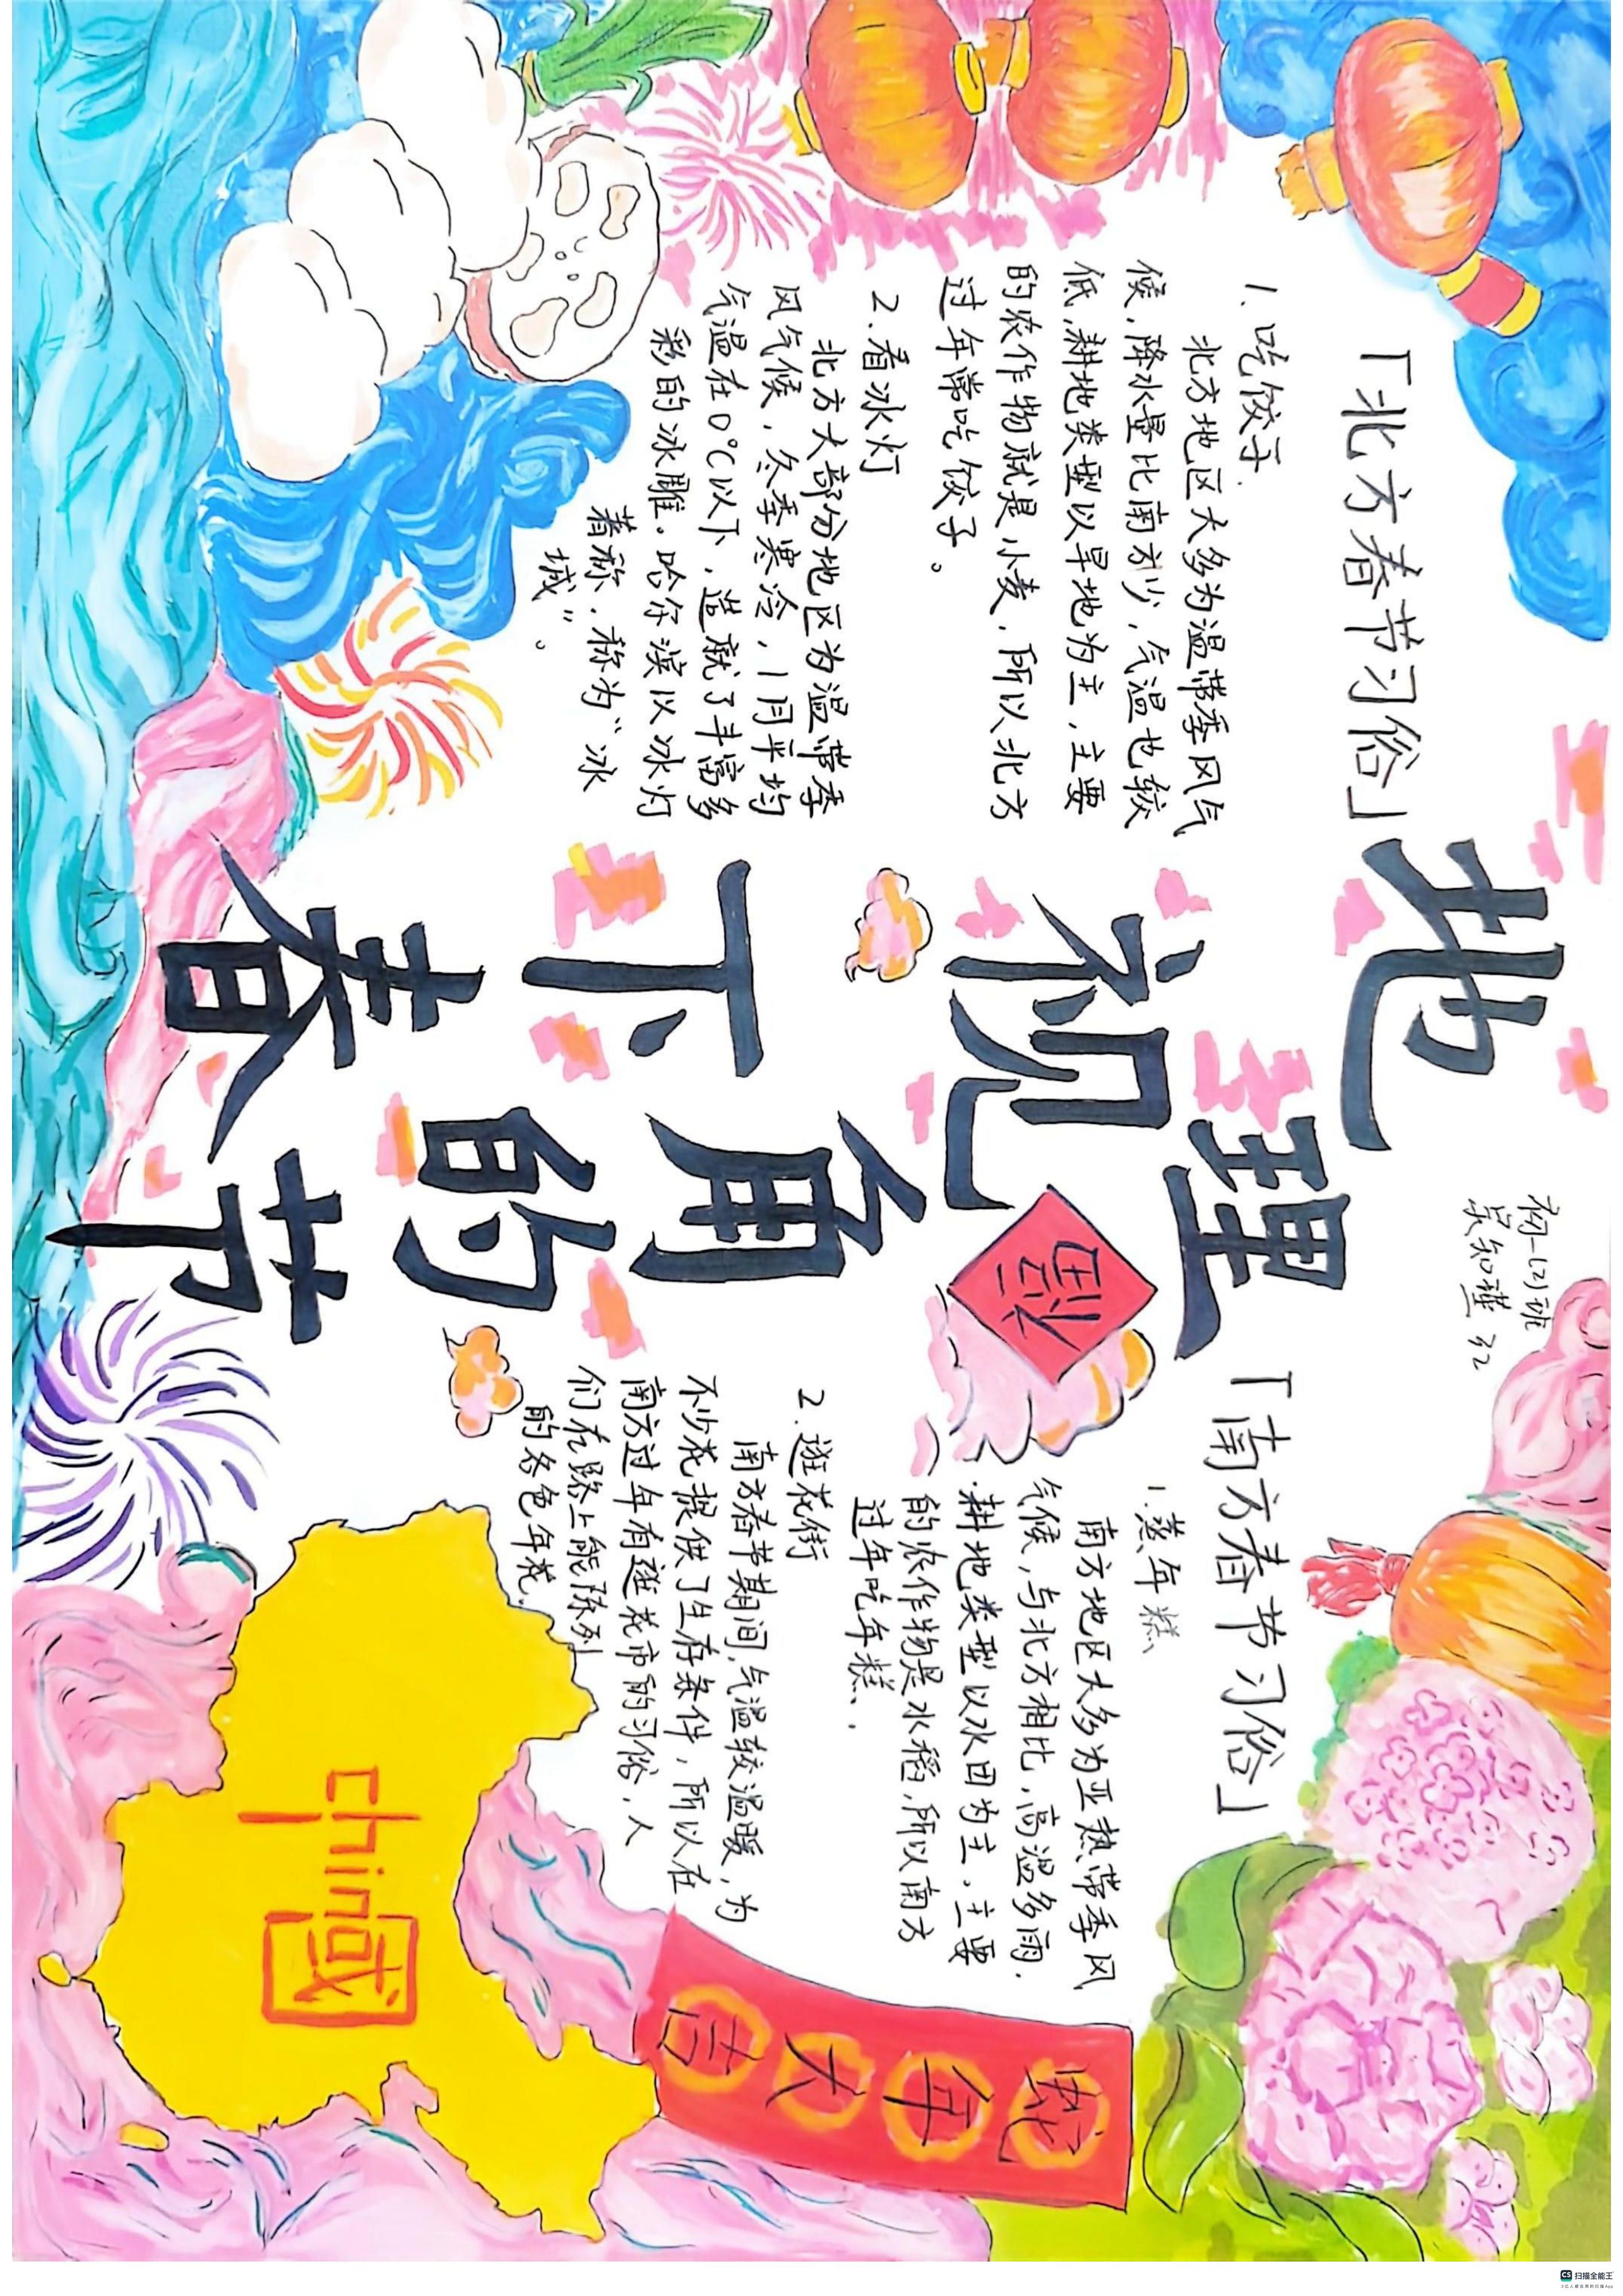 地理视角下的春节
初一(2)班
吴知瑾 32
「北方春节习俗」
1.吃饺子.
北方地区大多为温带季风气
候,降水量比南方少,气温也较
低,耕地类型以旱地为主,主要
的农作物就是小麦,所以北方
过年常吃饺子。
2.看冰灯
北方大部分地区为温带季
风气候,冬季寒冷,1月平均
气温在0℃以下,造就了丰富多
彩的冰雕。哈尔滨以冰灯
著称,称为“冰
城”。
「南方春节习俗」
1.蒸年糕、
南方地区大多为亚热带季风
气候,与北方相比,高温多雨.
耕地类型以水田为主,主要
的农作物是水稻,所以南方
过年吃年糕、.
2.逛花街
南方春节期间,气温较温暖,为
不少花提供了生存条件,所以在
南方过年有逛花市的习俗,人
们在路上能陈列
的各色年花.
福
蛇年大吉
china
CS 扫描全能王
3亿人都在用的扫描App